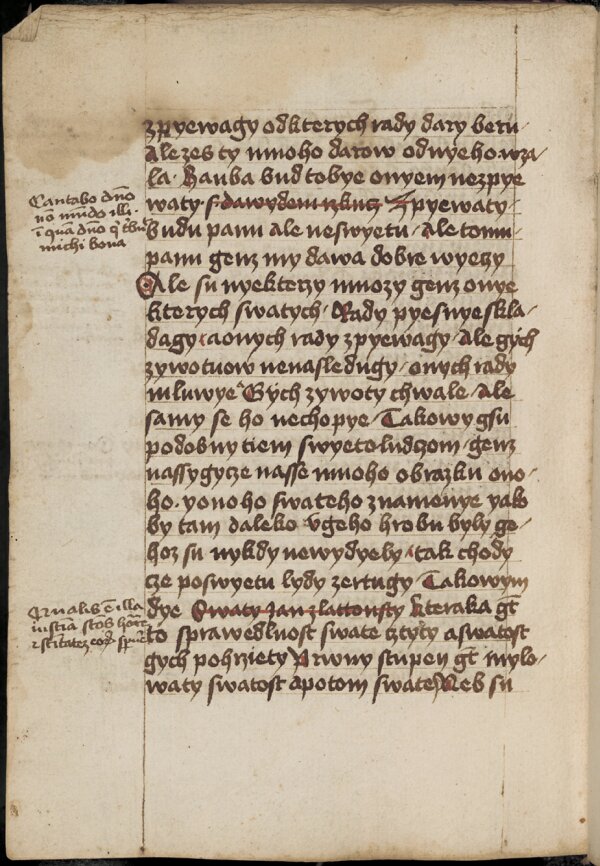 zpyewagy odkterych rady dary beru
Ale zes ty mnoho darow od nyeho wza
la. Hauba bud tobye o nyem nezpye
waty. s. dawydem rzkucz Zpyewaty
budu panu ale ne swyetu Ale tomu
panu genz my dawa dobre wyeczy
Ale su nyekterzy mnozy genz o nye
kterych swatych Rady pyesnye skla
dagy a o nych rady zpyewagy Ale gých
zywotuow nenasledugy o nych rady
mluwye Gých zywoty chwale Ale
samy se ho nechopye Takowy gsu
podobny tiem swyeto ludczom genz
nassygycze nasse mnoho obrazku ono
ho. y onoho swateho znamenye yako
by tam daleko v geho hrobu byly ge
hoz su nykdy newydyeby tak chody
cze po swyetu lydy zertugy Takowym
dye Swaty Jan zlattousty kteraka gt
to sprawedlnost swate cztyty a swatost
gých pohrziety Prwny stupen gt mylo
waty swatost a potom swate Neb su
Cantabo dno
no mundo illi
i qua dno q tbuit
michi bona
Qualis e illa
iusticia